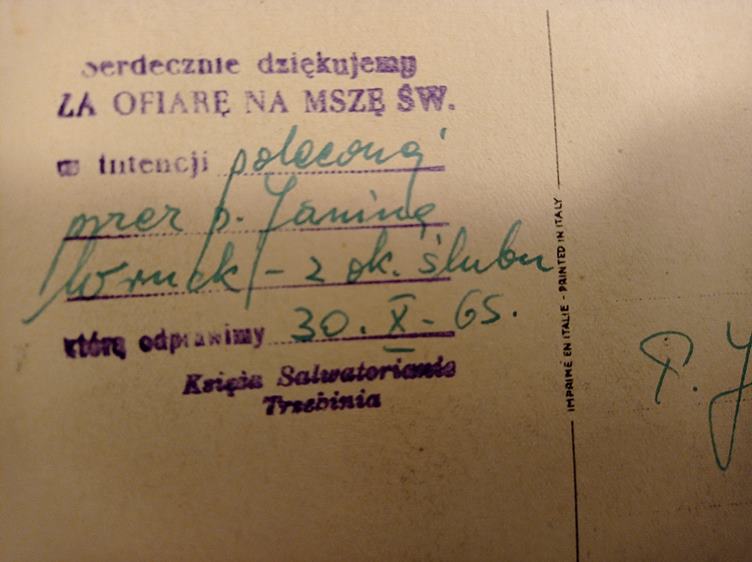 Serdecznie dziękujemy
ZA OFIARĘ NA MSZĘ ŚW.
w intencji poleconej
przez p. Janinę
- z ok. ślubu
którą odprawimy 30. X - 65.
Księża Salwatorianie
Trzebinia
IMPRIMÉ EN ITALIE - PRINTED IN ITALY
P. J